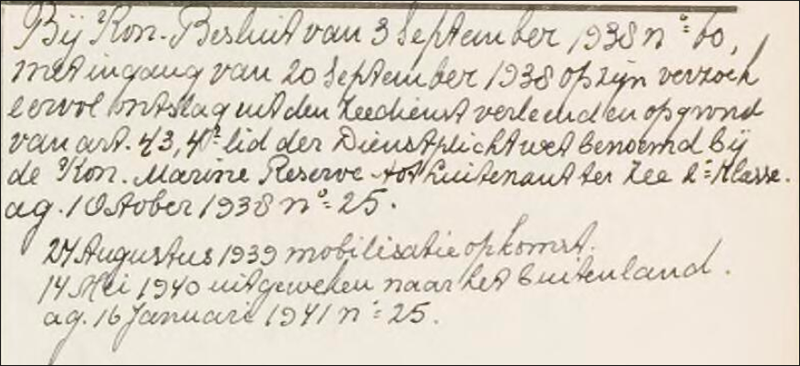 Bij Kon. Besluit van 3 September 1938 nº 60,
met ingang van 20 September 1938 op zijn verzoek
eervol ontslag uit den Zeedienst verleend en op grond
van art. 43, 4e lid der Dienstplichtwet benoemd bij
de Kon. Marine Reserve tot Luitenant ter Zee 2e Klasse.
ag. 1 October 1938 nº 25.
24 Augustus 1939 mobilisatie opkomst.
14 Mei 1940 uitgeweken naar het buitenland.
ag. 16 Januari 1941 nº 25.